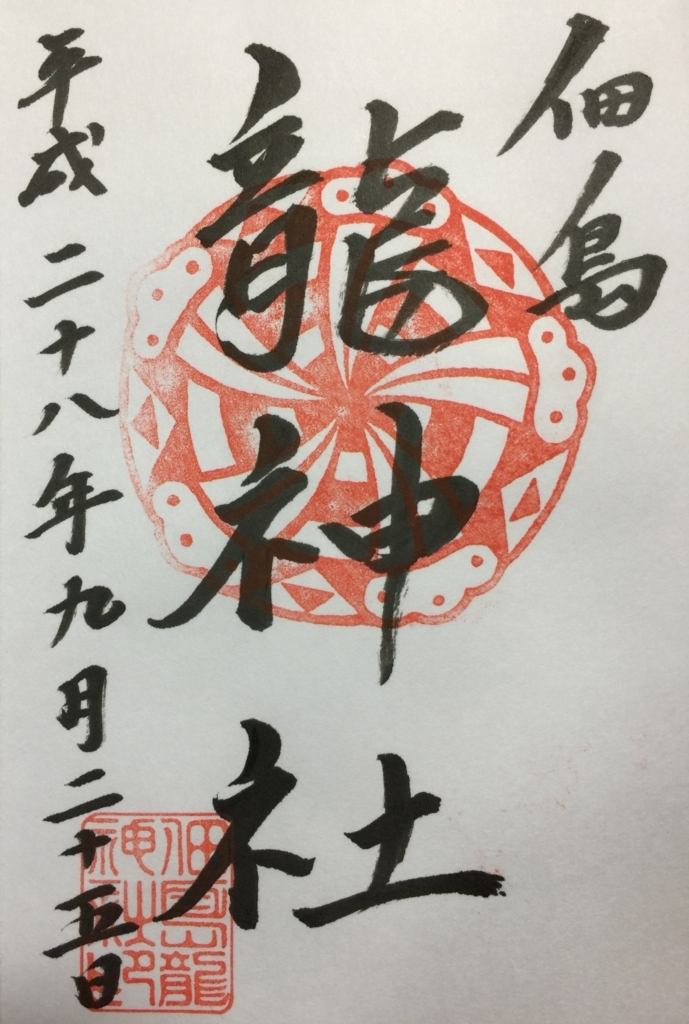 佃島
龍神社
平成二十八年九月二十五日
佃島龍
神社